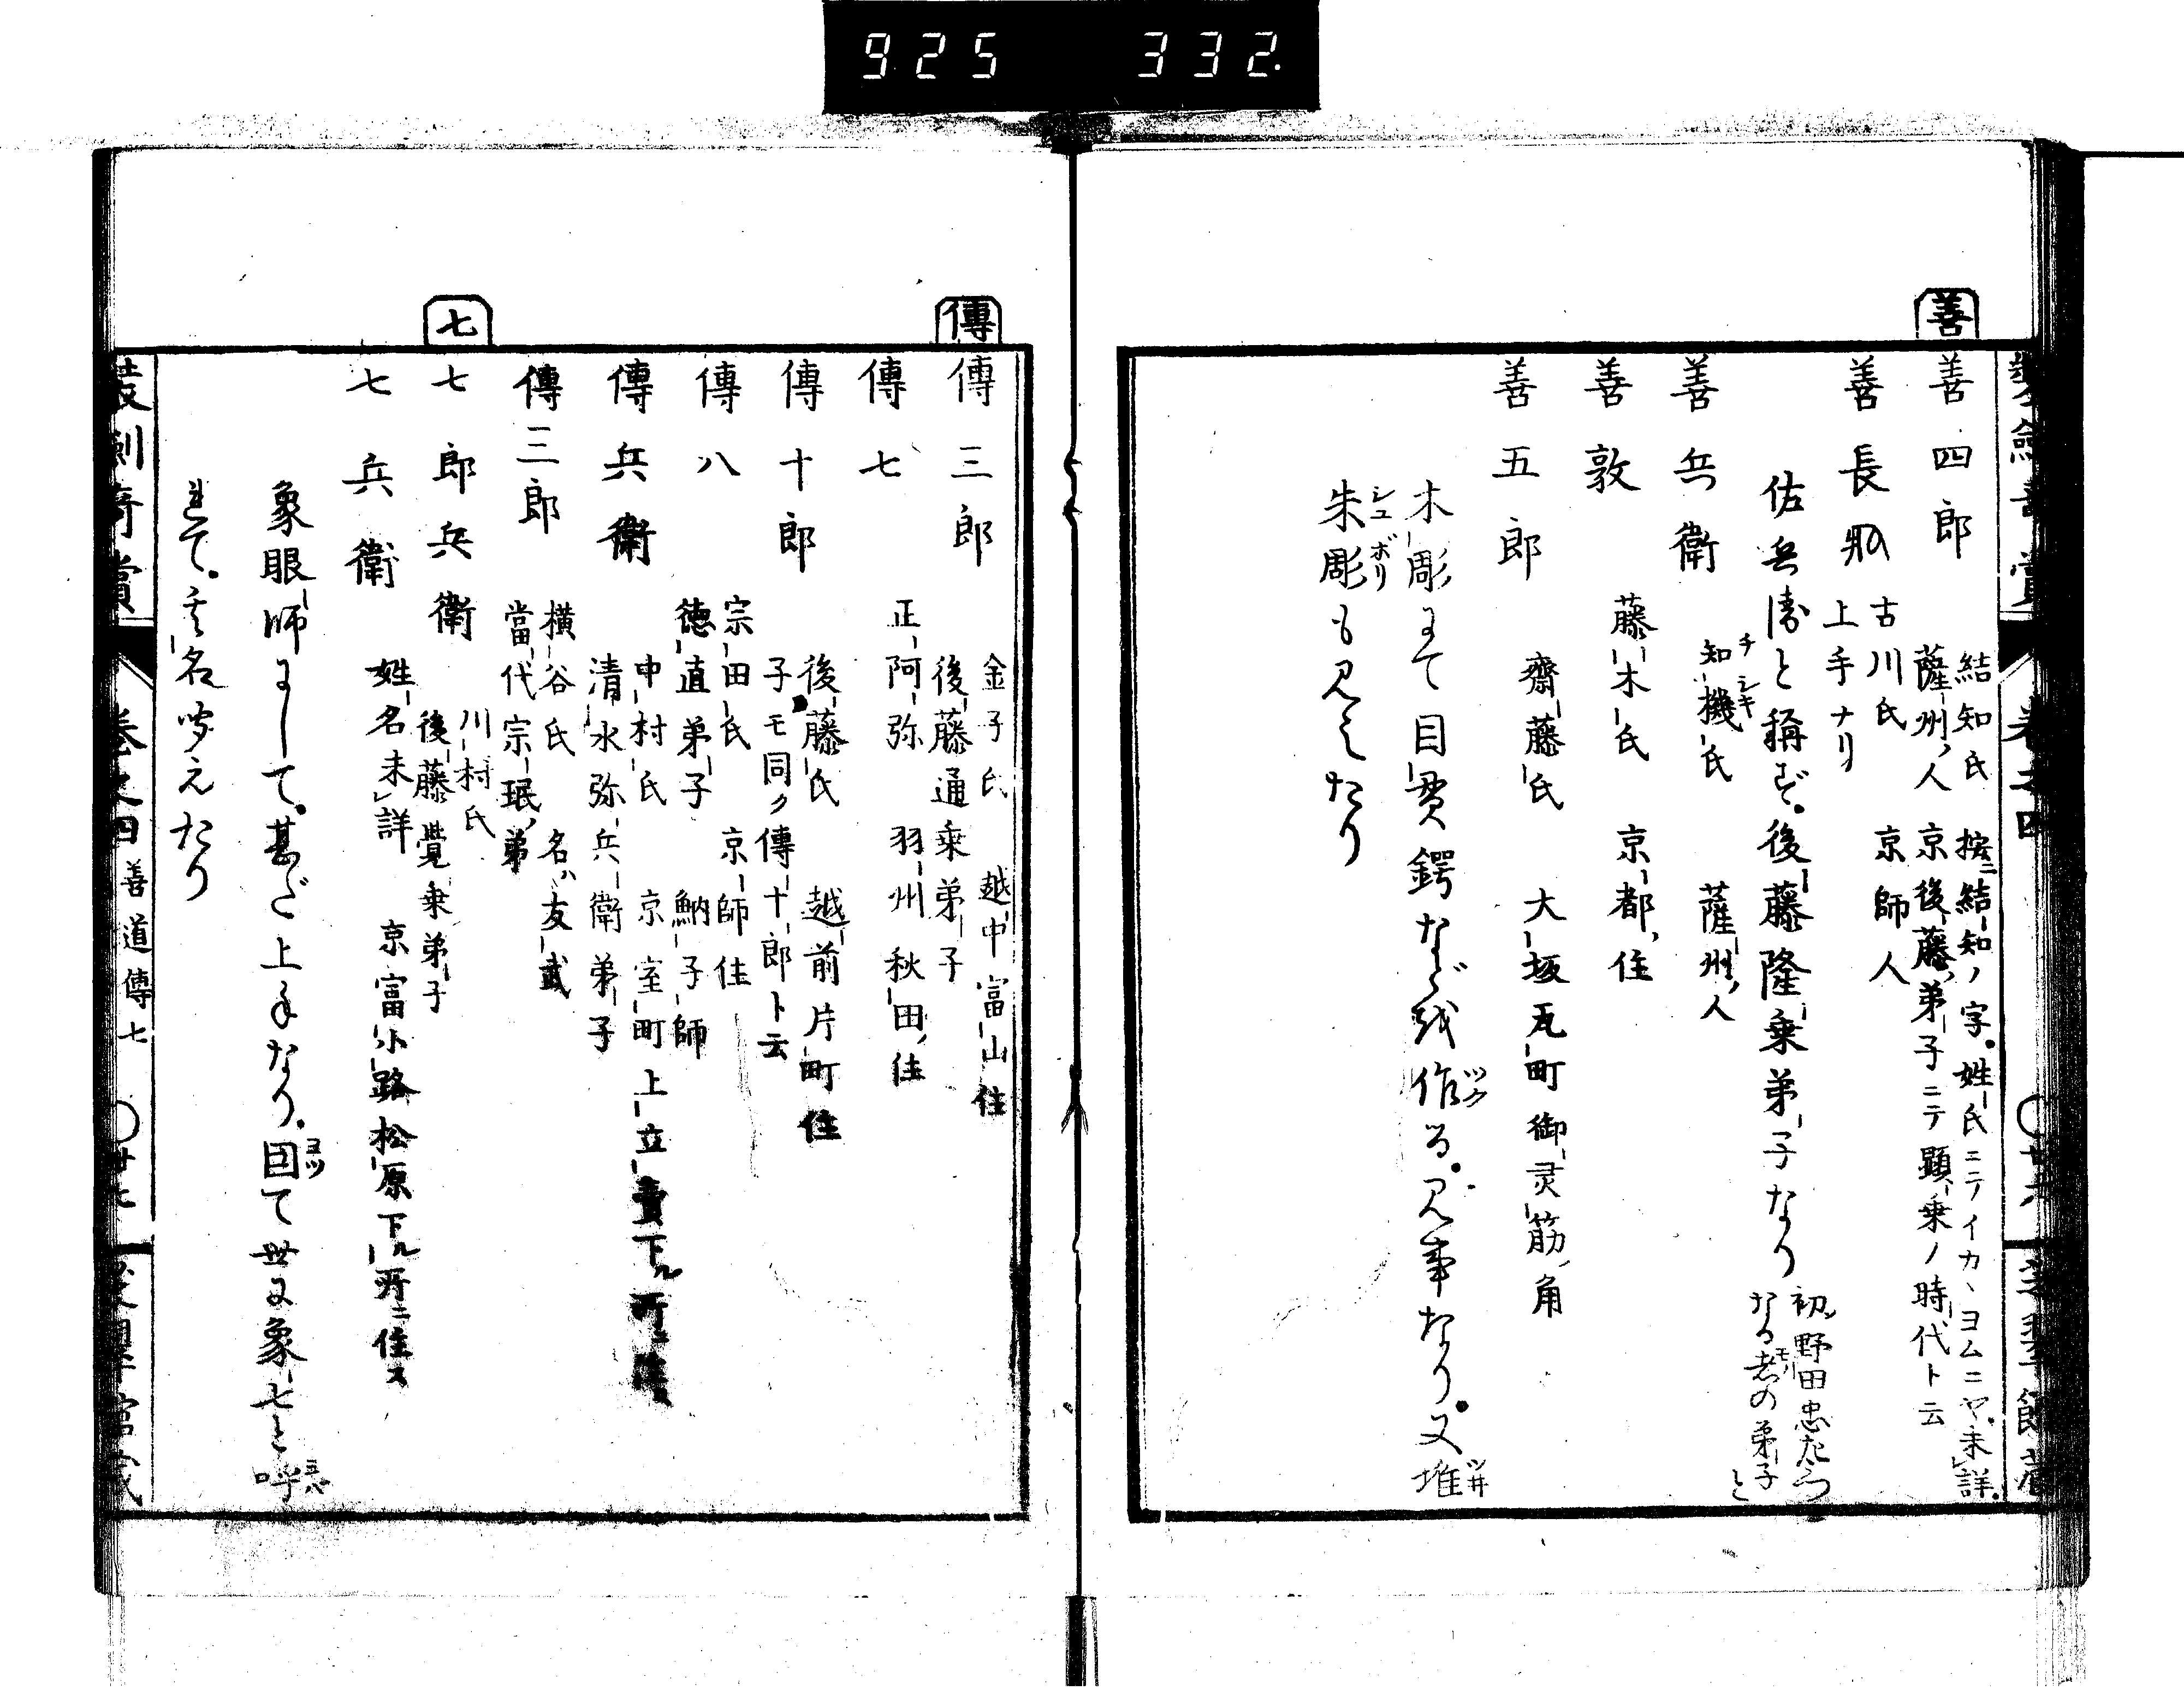 925 332.
善
善四郎 結知氏 按ニ結知ノ字。姓氏ニテイカヽヨムニヤ。未詳。
薩州ノ人 京後藤ノ弟子ニテ顕乗ノ時代ト云
善長 古川氏 京師人
上手ナリ
佐兵衛と稱ず。後藤隆乗弟子なり 初野田忠左
なる者の弟子と
善兵衛 知機氏 薩州ノ人
チシキ
善敦 藤木氏 京都ノ住
善五郎 齋藤氏 大坂瓦町御灵筋ノ角
木彫にて目貫鍔など作る。見事なり。又堆
ツク ツ井
朱彫も見えたり
シユボリ
傳
傳三郎 金子氏 越中富山住
後藤通乗弟子
傳七 正阿弥 羽州秋田ノ住
傳十郎 後藤氏 越前片町住
子モ同ク傳十郎ト云
傳八 宗田氏 京師住
徳直弟子 魶子師
傳兵衛 中村氏 京室町上立賣下ル町ニ住ス
清水弥兵衛弟子
傳三郎 横谷氏 名ハ友武
當代宗珉ノ弟
七
七郎兵衛 川村氏
後藤覺乗弟子
七兵衛 姓名未詳 京富小路松原下ル所ニ住ス
象眼師にして。甚だ上手なり。因て世に象七と呼
ヨツ ヨバ
れて。其名聞えたり
装劍奇賞 巻之四 善道傳七 ○廿七